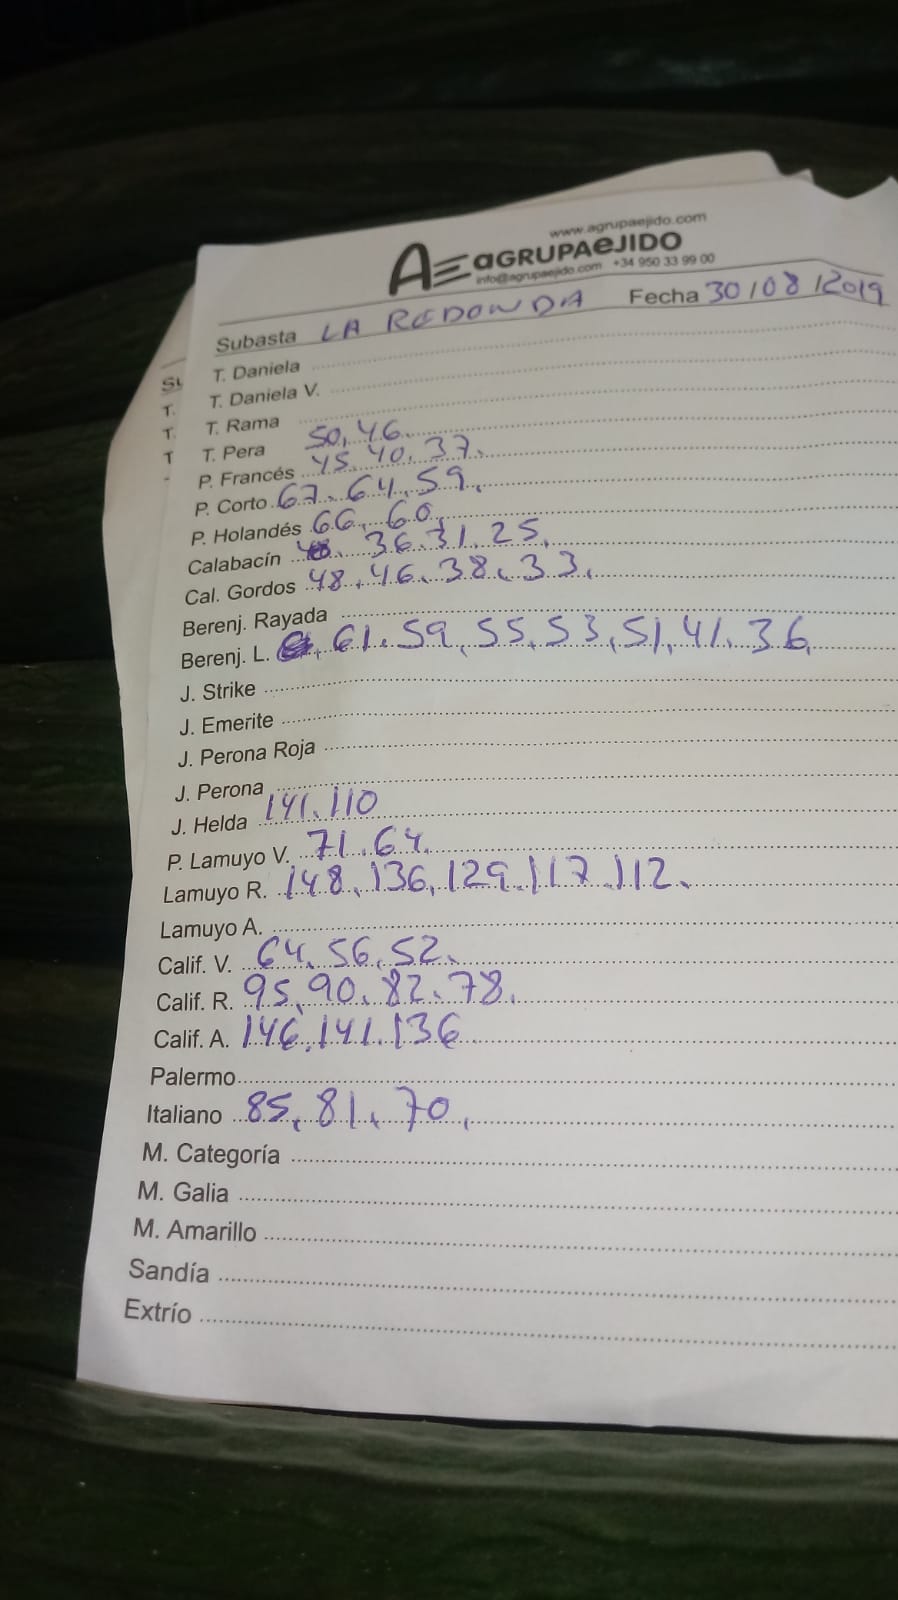 www.agrupaejido.com
AE aGRUPAeJIDO
info@agrupaejido.com +34 950 33 99 00
Subasta LA REDONDA Fecha 30/08/2019
T. Daniela
T. Daniela V.
T. Rama
T. Pera 50, 46.
P. Francés 45. 40. 37.
P. Corto 67. 64. 59.
P. Holandés 66, 60,
Calabacín 36. 31. 25.
Cal. Gordos 48. 46. 38. 33.
Berenj. Rayada
Berenj. L. 61. 59, 55. 53, 51, 41. 36,
J. Strike
J. Emerite
J. Perona Roja
J. Perona
J. Helda 141. 110
P. Lamuyo V. 71. 64.
Lamuyo R. 148. 136, 129. 117. 112.
Lamuyo A.
Calif. V. 64. 56. 52.
Calif. R. 95. 90. 82. 78.
Calif. A. 146. 141. 136
Palermo
Italiano 85, 81, 70,
M. Categoría
M. Galia
M. Amarillo
Sandía
Extrío